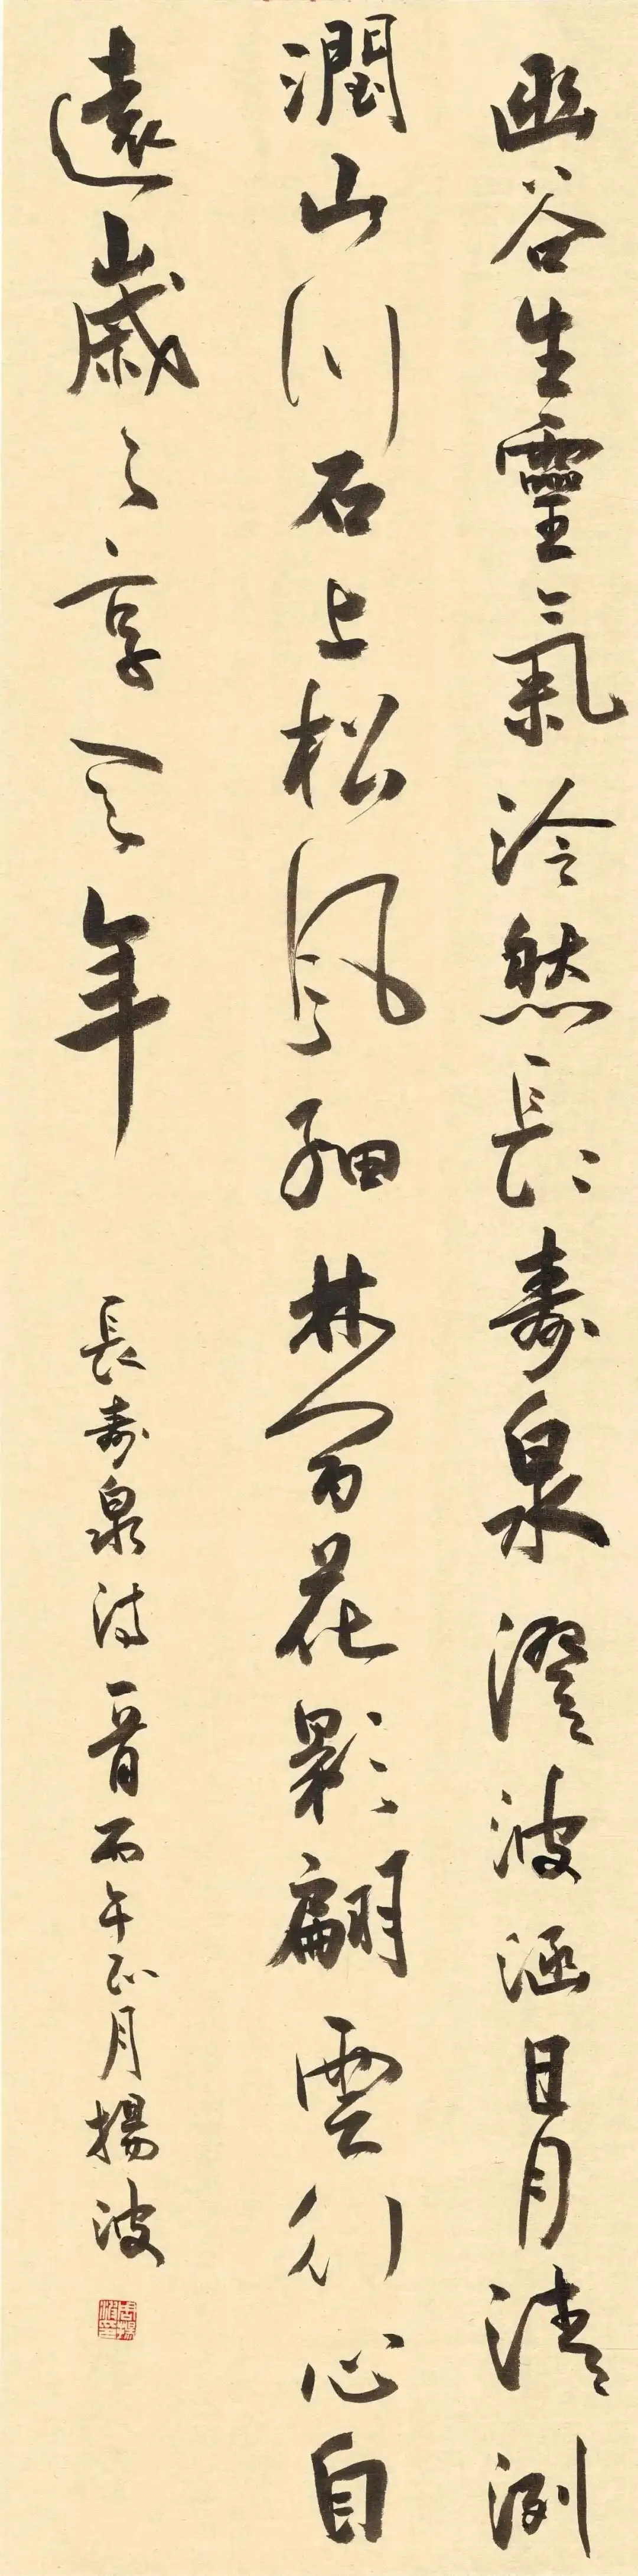 幽谷生靈氣泠然長壽泉澄波涵日月清洌
潤山川石上松風細林間花影翩雲行心自
遠歲々享天年
長壽泉詩一首丙午正月揚波